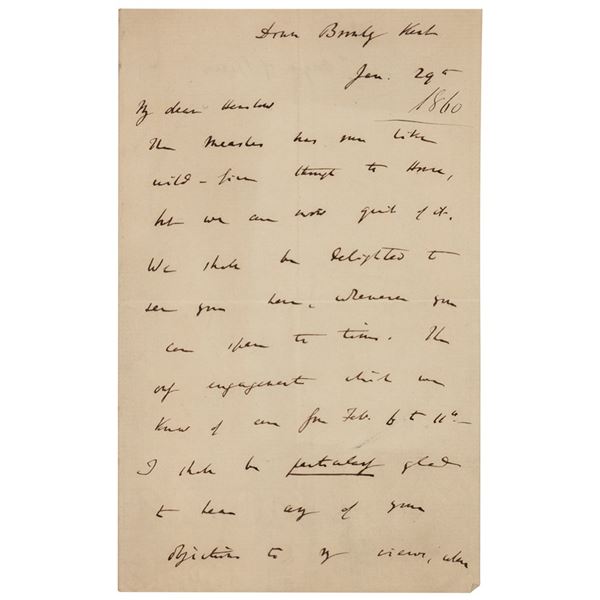 Down Bromley Kent
Jan. 29th
1860
My dear Henslow
The Measles has run like
wild-fire through the House,
but we are now quit of it.
We shall be delighted to
see you here, whenever you
can spare the time. The
only engagement which we
know of are from Feb. 6 to 11th—
I shall be particularly glad
to hear any of your
objections to my views, when